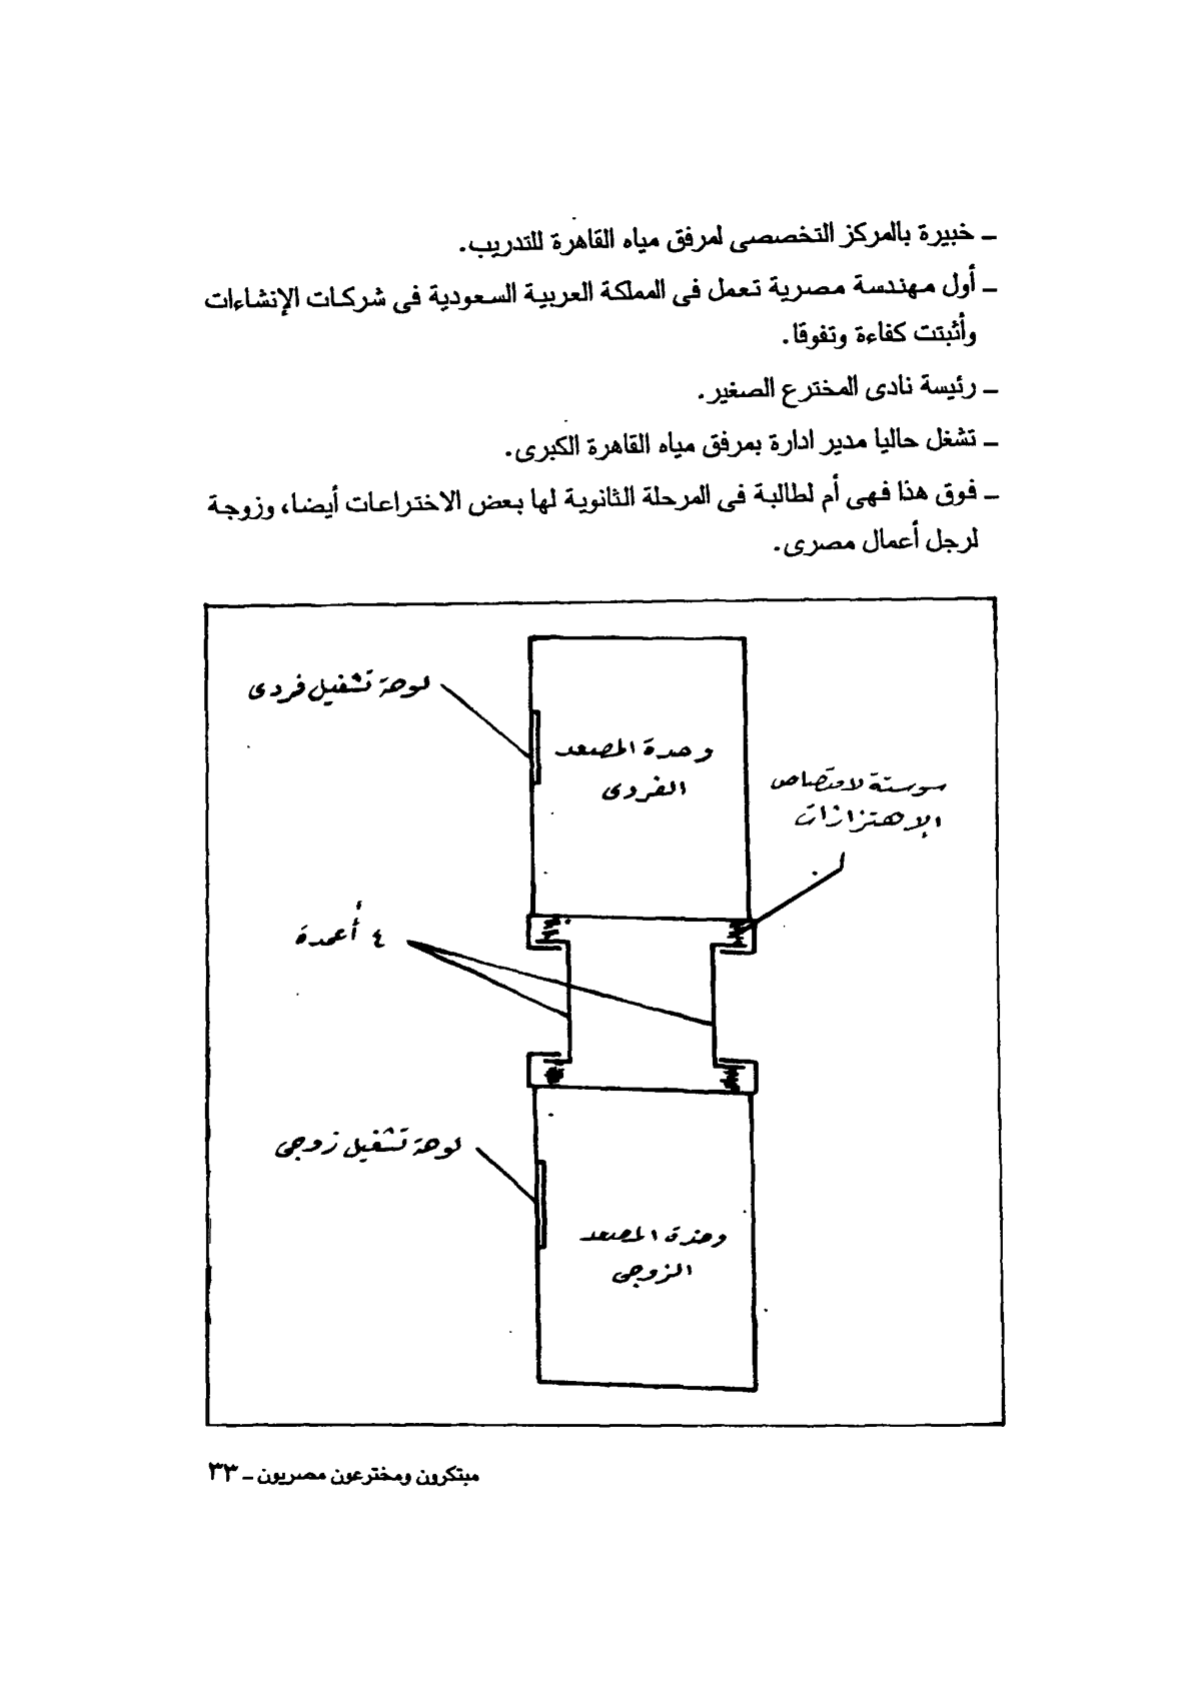 ـ خبيرة بالمركز التخصصى لمرفق مياه القاهرة للتدريب.
ـ أول مهندسة مصرية تعمل فى المملكة العربية السعودية فى شركات الإنشاءات
وأثبتت كفاءة وتفوقا.
ـ رئيسة نادى المخترع الصغير.
ـ تشغل حاليا مدير ادارة بمرفق مياه القاهرة الكبرى.
ـ فوق هذا فهى أم لطالبة فى المرحلة الثانوية لها بعض الاختراعات أيضا، وزوجة
لرجل أعمال مصرى.
لوحة تشغيل فردى
وحدة المصعد
الفردى
سوستة لامتصاص
الإهتزازات
٤ أعمدة
لوحة تشغيل زوجى
وحدة المصعد
الزوجى
مبتكرون ومخترعون مصريون ـ ٣٣